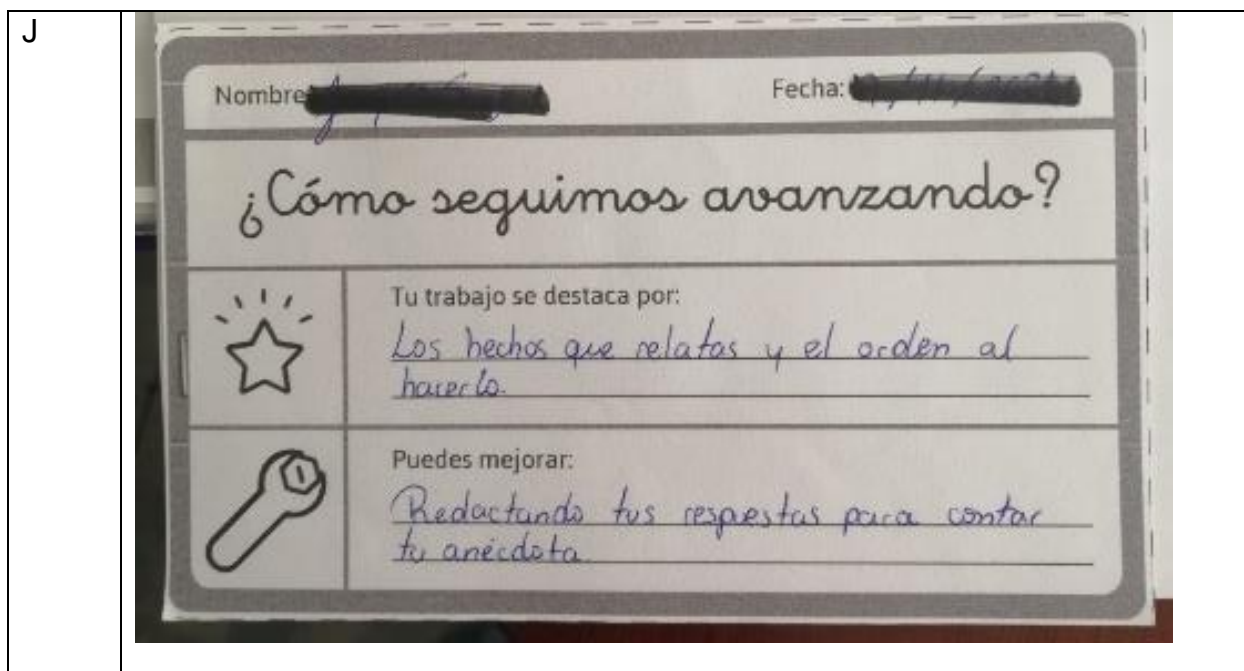 J
Nombre
Fecha:
¿Cómo seguimos avanzando?
Tu trabajo se destaca por:
Los hechos que relatas y el orden al
hacerlo.
Puedes mejorar:
Redactando tus respuestas para contar
tu anécdota.